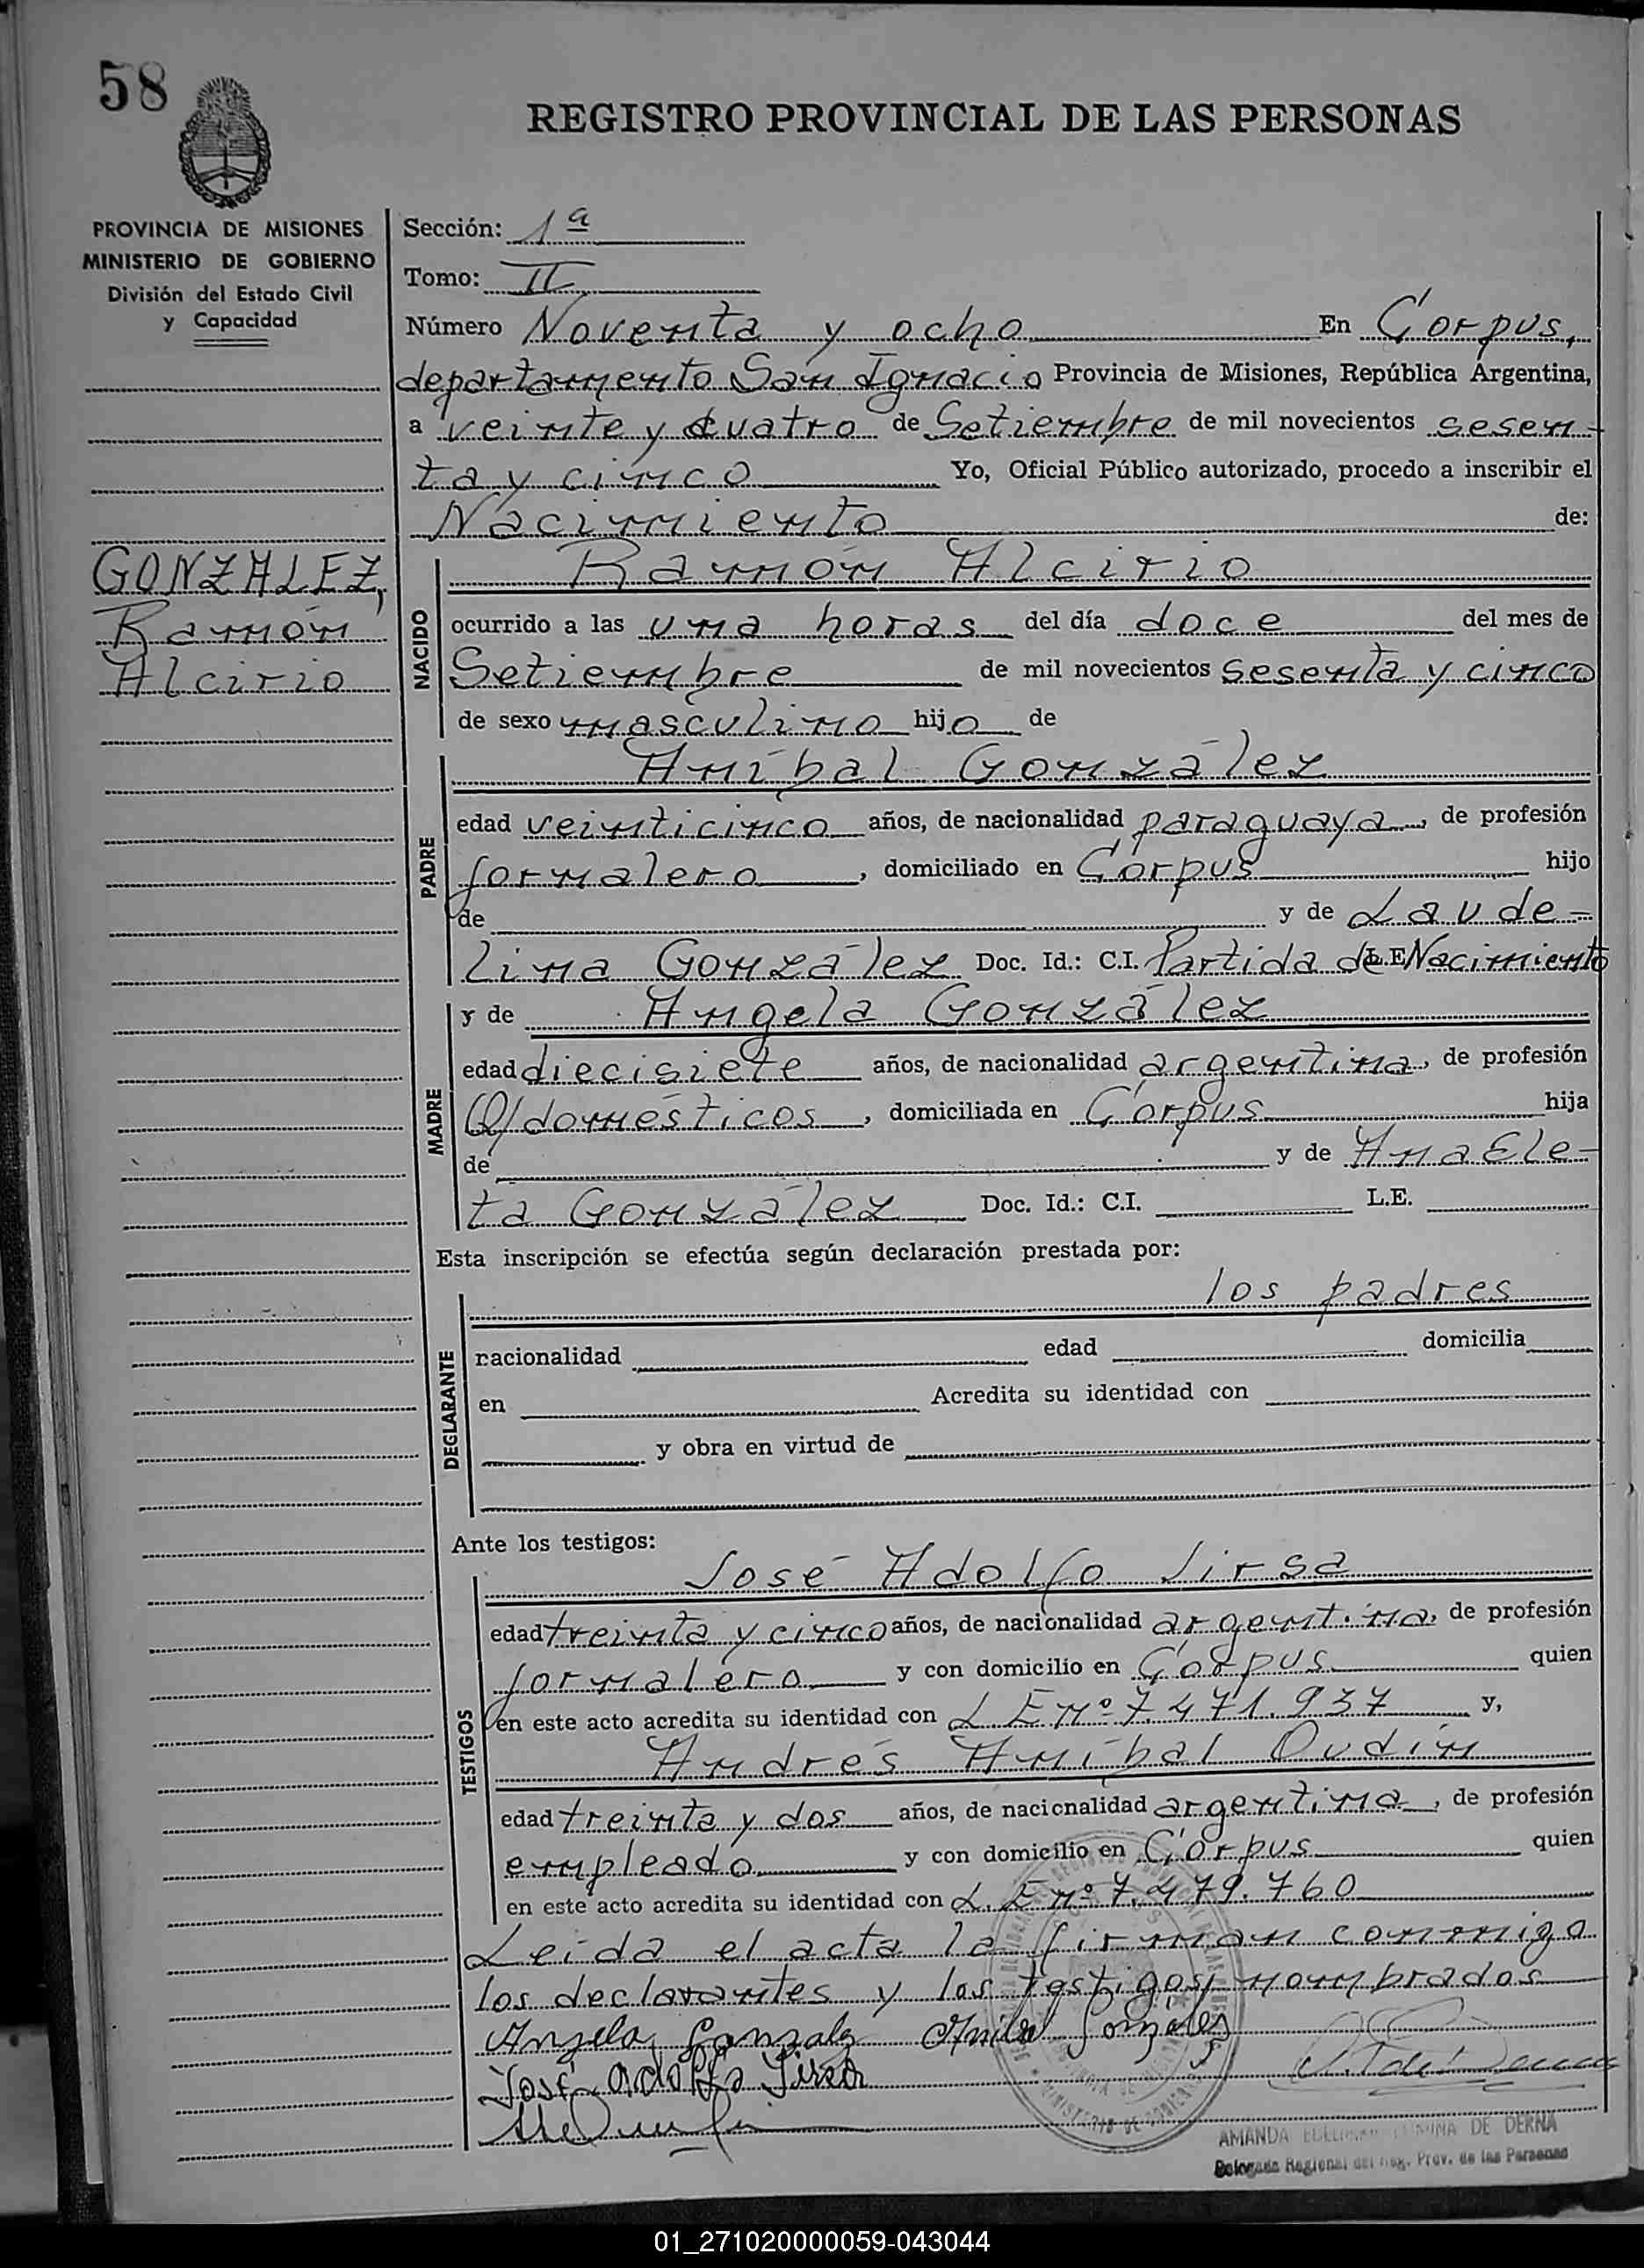 58
REGISTRO PROVINCIAL DE LAS PERSONAS
PROVINCIA DE MISIONES
MINISTERIO DE GOBIERNO
División del Estado Civil
y Capacidad
GONZALEZ,
Ramón
Alcirio
Sección: 1ª
Tomo: II
Número Noventa y ocho En Corpus,
departamento San Ignacio Provincia de Misiones, República Argentina,
a veinte y cuatro de Setiembre de mil novecientos sesen-
ta y cinco Yo, Oficial Público autorizado, procedo a inscribir el
Nacimiento de:
NACIDO
Ramón Alcirio
ocurrido a las una horas del día doce del mes de
Setiembre de mil novecientos sesenta y cinco
de sexo masculino hijo de
PADRE
Aníbal González
edad veinticinco años, de nacionalidad paraguaya, de profesión
jornalero, domiciliado en Corpus hijo
de y de Laude-
lina González Doc. Id.: C.I. Partida de L.E. Nacimiento
MADRE
y de Angela González
edad diecisiete años, de nacionalidad argentina, de profesión
Q/domésticos, domiciliada en Corpus hija
de y de Ana Ele-
ta González Doc. Id.: C.I. L.E.
Esta inscripción se efectúa según declaración prestada por:
DECLARANTE
los padres
nacionalidad edad domicilia
en Acredita su identidad con
y obra en virtud de
Ante los testigos:
TESTIGOS
José Adolfo Jirsa
edad treinta y cinco años, de nacionalidad argentina, de profesión
jornalero y con domicilio en Corpus quien
en este acto acredita su identidad con L E Nº 7.471.937 y,
Andrés Aníbal Oudin
edad treinta y dos años, de nacionalidad argentina, de profesión
empleado y con domicilio en Corpus quien
en este acto acredita su identidad con L. E Nº 7.479.760
Leída el acta la firman conmigo
los declarantes y los testigos nombrados
Angela Gonzalez Anibal González
José Adolfo Jirsa
AMANDA DE DERNA
Delegada Regional del Reg. Prov. de las Personas
01_271020000059-043044